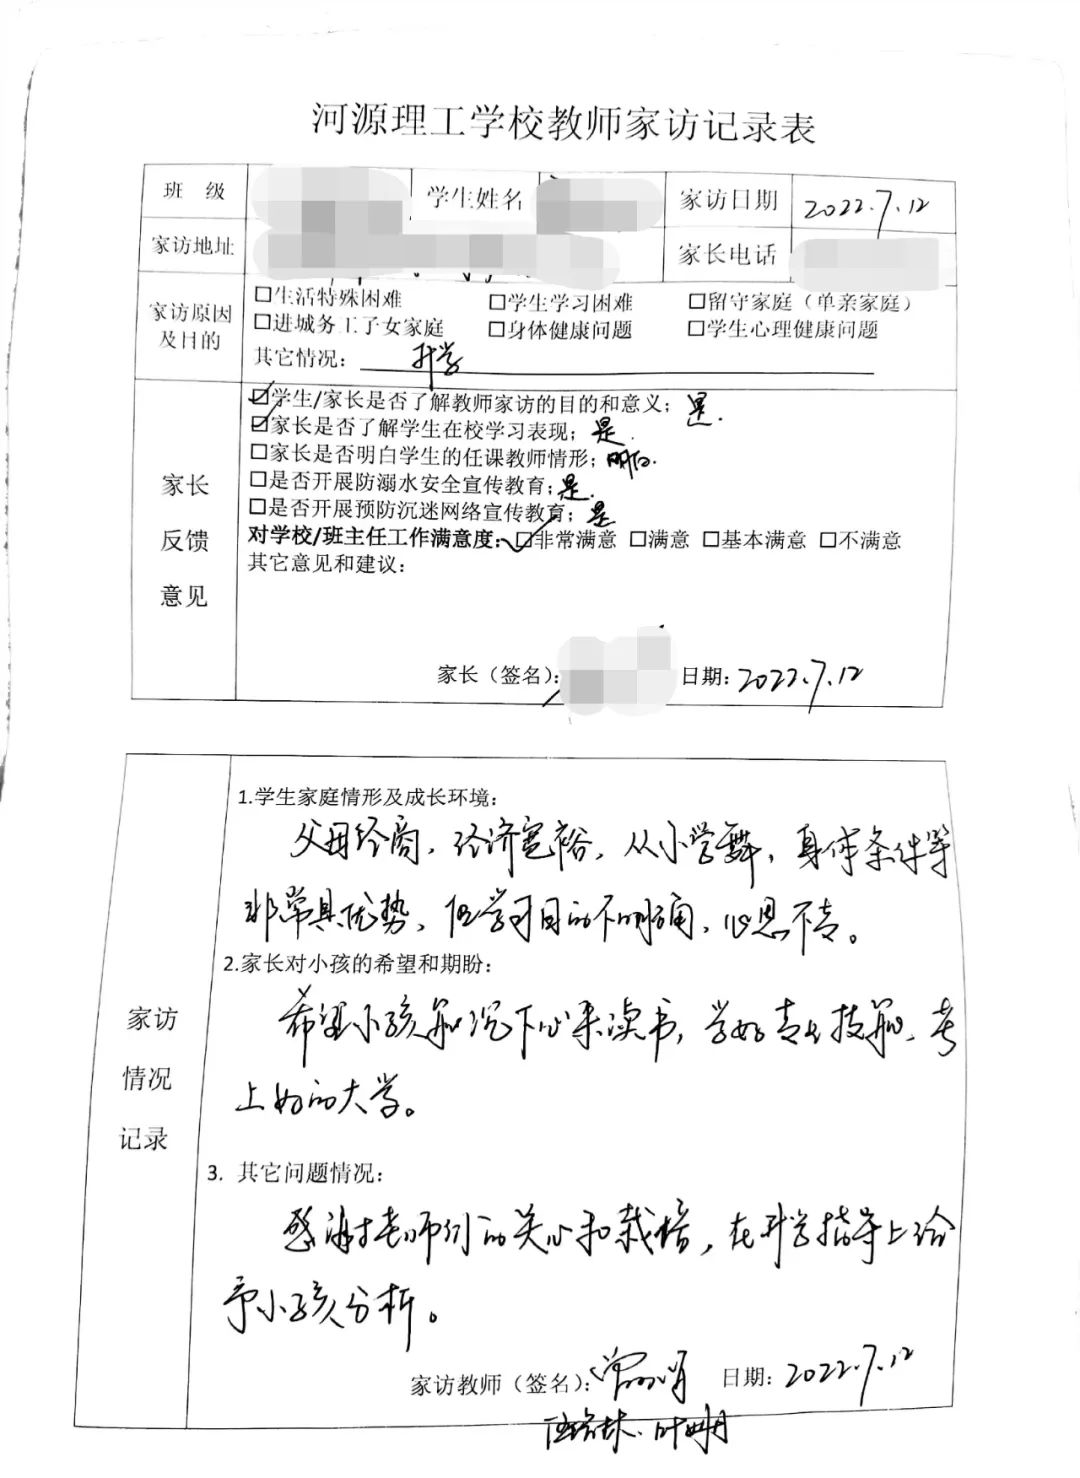 河源理工学校教师家访记录表
班 级 学生姓名 家访日期 2022.7.12
家访地址 家长电话
家访原因及目的
□生活特殊困难 □学生学习困难 □留守家庭（单亲家庭）
□进城务工子女家庭 □身体健康问题 □学生心理健康问题
其它情况： 升学
家长反馈意见
☑学生/家长是否了解教师家访的目的和意义；是.
☑家长是否了解学生在校学习表现；是.
□家长是否明白学生的任课教师情形；明白.
□是否开展防溺水安全宣传教育；是.
□是否开展预防沉迷网络宣传教育；是
对学校/班主任工作满意度：☑非常满意 □满意 □基本满意 □不满意
其它意见和建议：
家长（签名）： 日期：2022.7.12
家访情况记录
1.学生家庭情形及成长环境：
父母经商，经济宽裕，从小学舞，身体条件等
非常具优势，但学习目的不明确，心思不专。
2.家长对小孩的希望和期盼：
希望小孩能沉下心来读书，学好专业技能，考
上好的大学。
3. 其它问题情况：
感谢老师们的关心和栽培，在升学指导上给
予小孩分析。
家访教师（签名）： 日期：2022.7.12